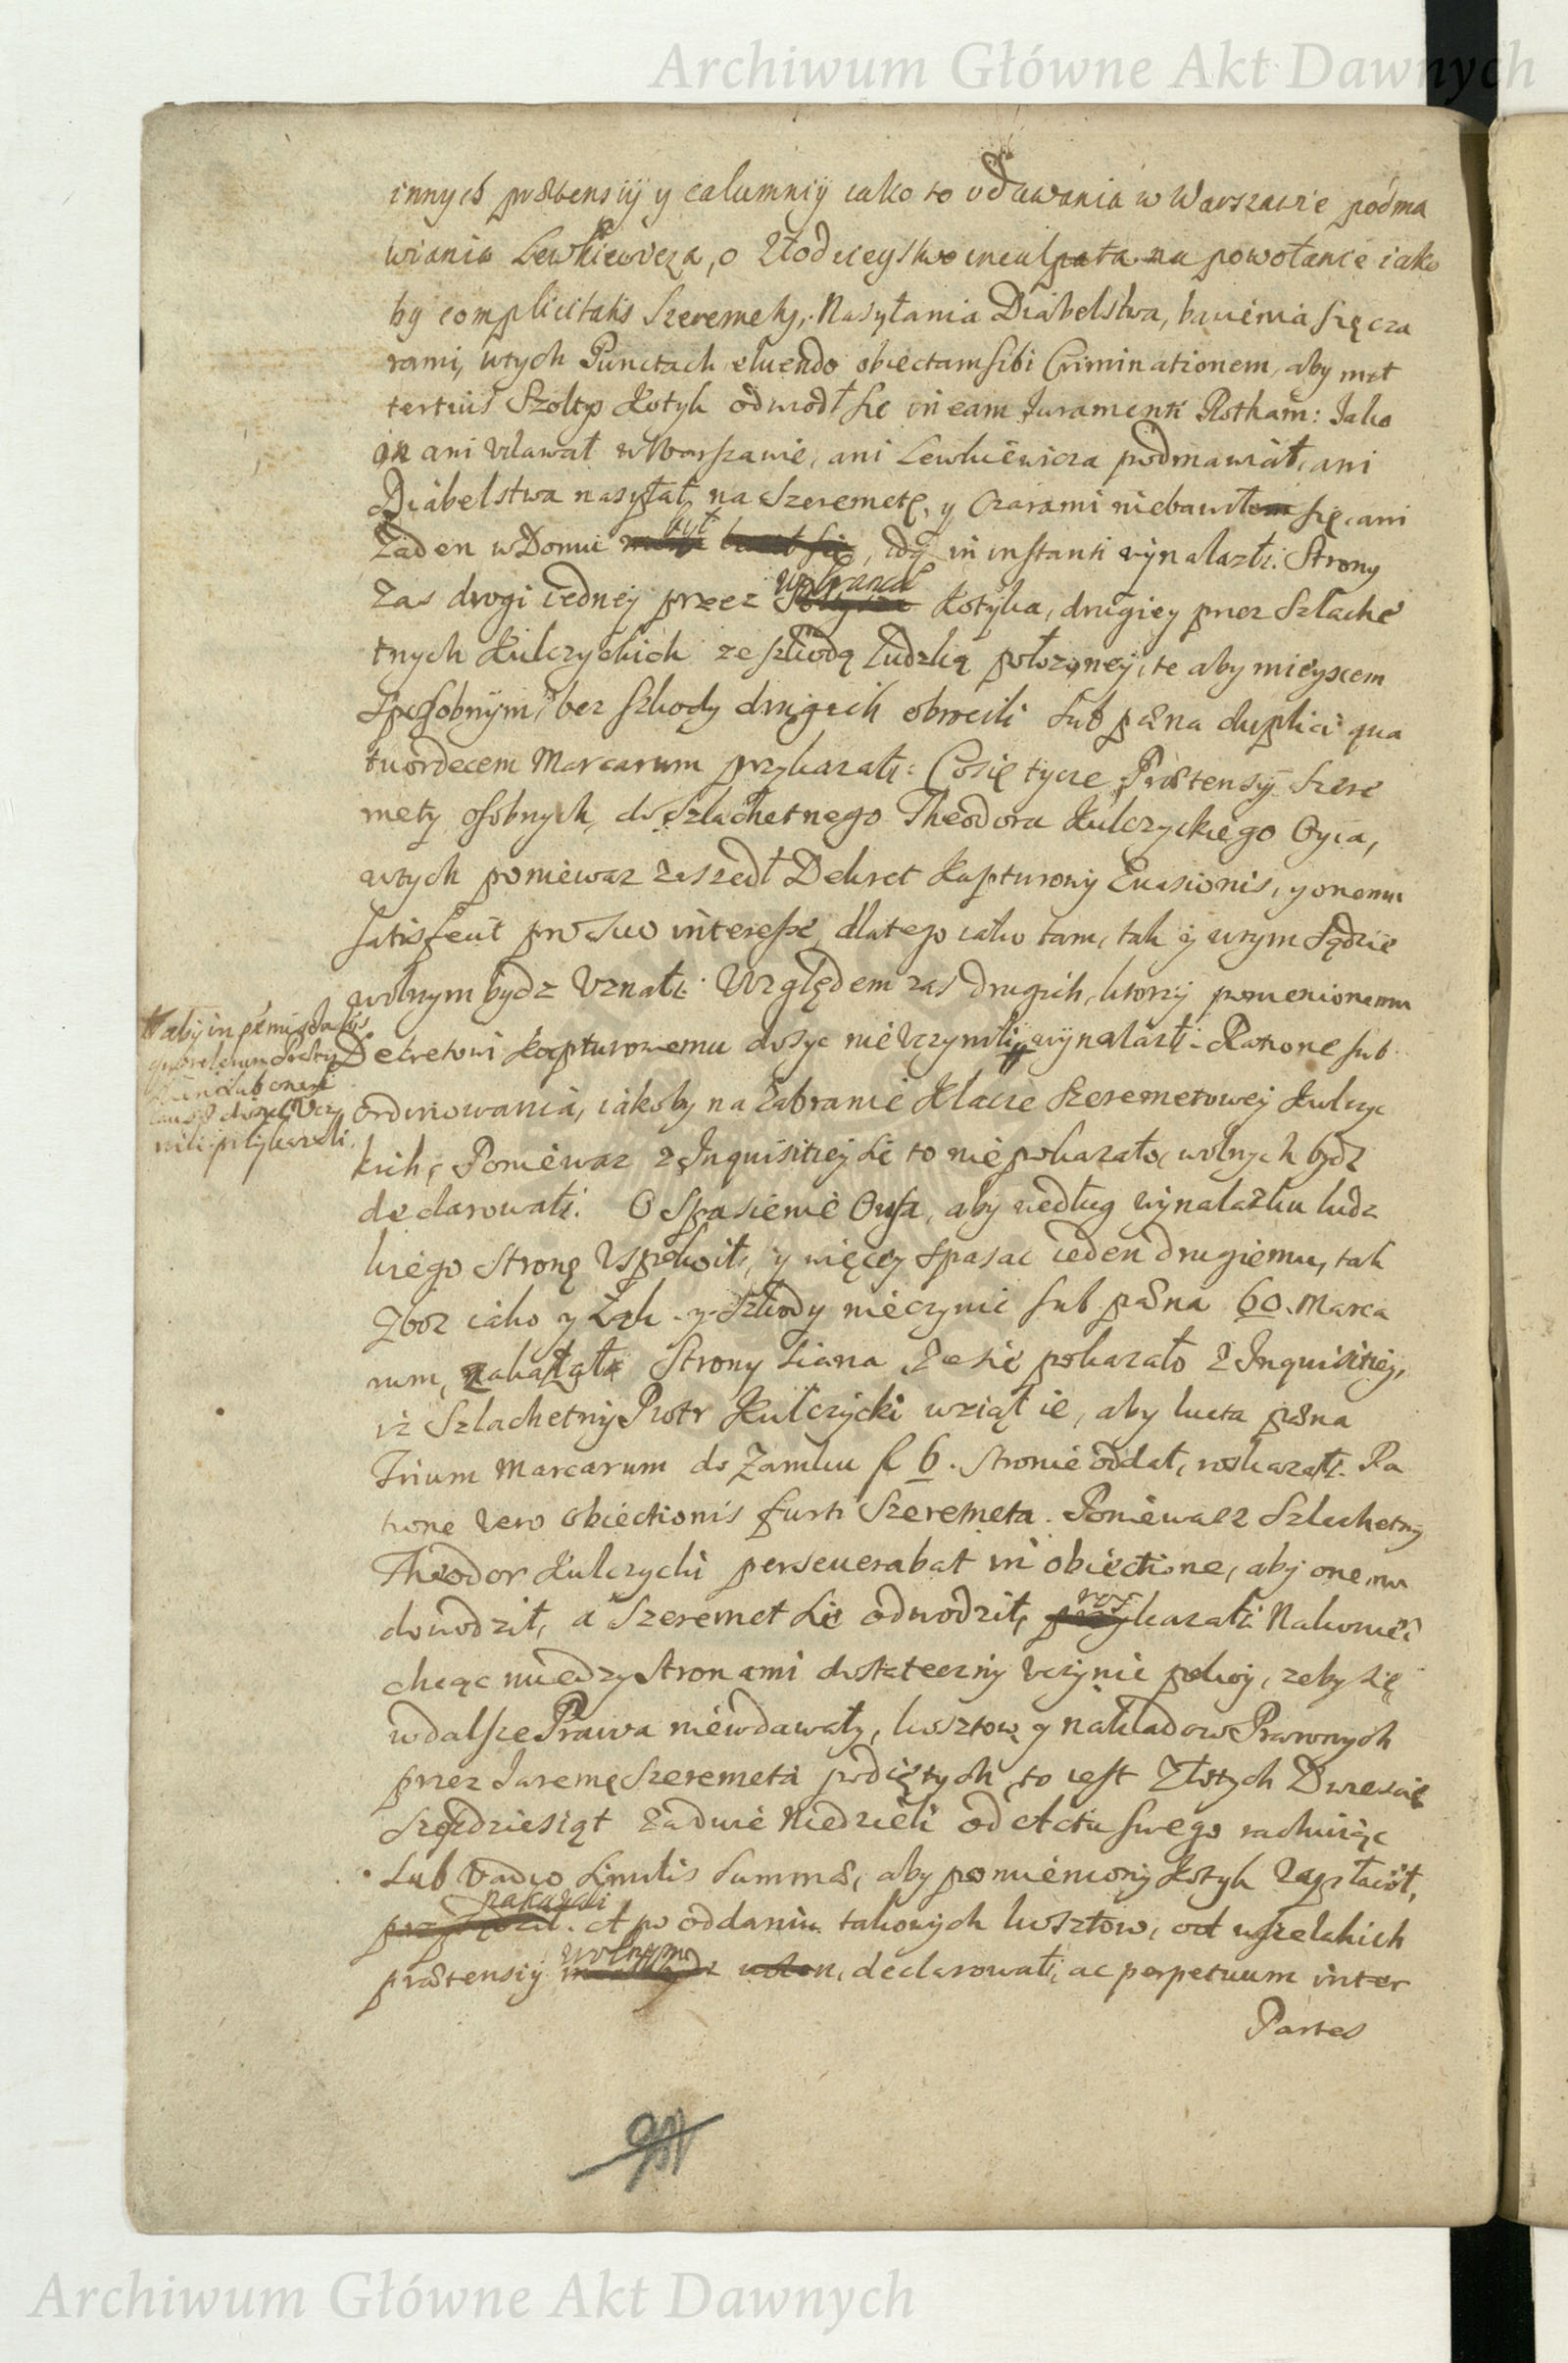 Archiwum Główne Akt Dawnych
innych prætensiÿ y calumniÿ iako to vdawania w Warszawie podma
wiania Lewkiewicza, o Złodzieystwo na powołanie iako
by complicitatis Szeremety, Nasyłania Diabelstwa, bawienia się cza
rami, wtych Punctach eluendo obiectam sibi Criminationem, aby met
tertius Szoltys Kotyk odwodł się in eam Iuramenti Rotham: Iako
on ani vdawał w Warszawie, ani Lewkiewicza podmawiał, ani
Diabelstwa nasyłał na Szeremetę, y Czarami niebawił się, ani
Żaden w Domu był, idq in instanti wynalazłi. Strony
Zas drogi iedney przez Kotyka, drugiey przez Szlache
tnych Kulczyckich ze szkodą ludzką położoney, te aby mieyscem
sposobnym, bez szkody drugich obrocili sub pæna duplici qua
tuordecem Marcarum przykazałi: Cosię tycze Prætensÿ Szere
mety osobnych, do Szlachetnego Theodora Kulczyckiego Oyca,
wtych poniewaz zaszedł Dekret Kapturowy Euasionis, y onemu
satisfecit pro suo interesse, dlatego iako tam, tak y wtym Sądzie
wolnym bydz vznałi. Względem zas drugich, ktorzy pomienionemu
Dekretowi Kapturowemu dosyc nie vczynili, wynalazłi. Ratione sub
ordinowania, iakoby na Zabranie Klacze Szeremetowey Kulczyc
kich, Poniewaz z Inquisitiey się to nie pokazało, wolnych bydz
declarowałi. O Spasienie Owsa, aby według wynalazku ludz
kiego Stronę vspokoił, y więcey spasac ieden drugiemu, tak
Zboz iako y Łąk y Szkody nieczynic sub pæna 60. Marca
rum, zakazałi Strony Siana, Ze się pokazało z Inquisitiey,
iż Szlachetny Piotr Kulczycki wziął ie, aby luita pæna
Trium Marcarum do Zamku f 6. stronie oddał, roskazałi. Ra
tione vero obiectionis furti Szeremeta. Poniewasz Szlachetny
Theodor Kulczycki perseuerabat in obiectione, aby onemu
dowodził, a Szeremet się odwodził, roskazałi Nakoniec
chcąc między stronami dostateczny vczynic pokoy, zeby się
wdalsze Prawa niewdawały, kosztow y nakladow Prawnych
przez Jaremę Szeremeta podiętych, to iest Złotych Dwiescie
Sześdziesiąt za dwie Niedzieli od Actu swego rachuiąc
sub Vadio similis summæ, aby pomieniony Kotyk zapłacił,
nakazali. A po oddaniu takowych kosztow, od wszelakich
prætensiÿ wolnymi declarowałi, ac perpetuum inter
Partes
# aby in præmissa
przykazali.
Archiwum Główne Akt Dawnych